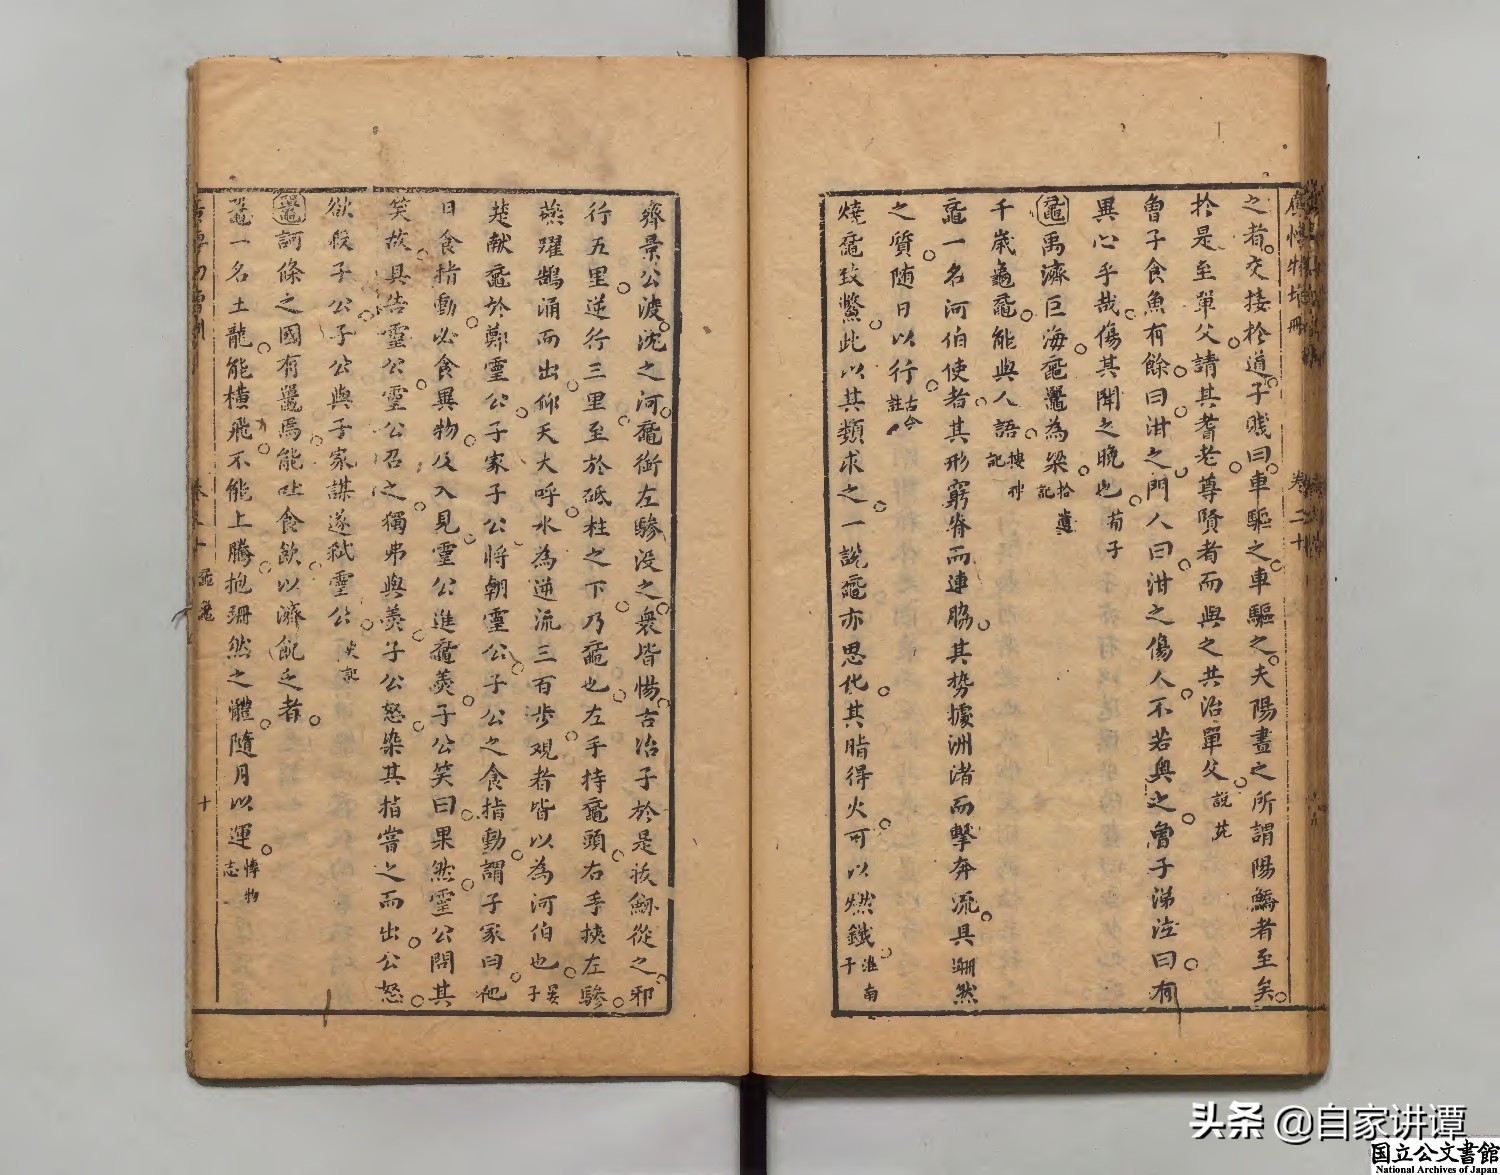 之者交接於道子賤曰車驅之車驅之夫陽晝之所謂陽鱎者至矣
於是至單父請其耆老尊賢者而與之共治單父說苑
曾子食魚有餘曰泔之門人曰泔之傷人不若奧之曾子涕泣曰有
異心乎哉傷其聞之晚也荀子
黿禹濟巨海黿鼉為梁拾遺記
千歲龜黿能與人語搜神記
黿一名河伯使者其形窮脊而連脇其勢據洲渚而擊奔流具淵然
之質随日以行古今註
燒黿致鱉此以其類求之一說黿亦思化其脂得火可以燃鐵淮南子
卷二十
齊景公渡沈之河黿銜左驂没之衆皆惕古冶子於是拔劒從之邪
行五里逆行三里至於砥柱之下乃黿也左手持黿頭右手挾左驂
燕躍鵠涌而出仰天大呼水為逆流三百步觀者皆以為河伯也晏子
楚献黿於鄭靈公子家子公將朝靈公子公之食指動謂子家曰他
日食指動必食異物及入見靈公進黿羹子公笑曰果然靈公問其
笑故具告靈公靈公召之獨弗與羹子公怒染其指嘗之而出公怒
欲殺子公子公與子家謀遂弒靈公史記
鼉訶條之國有鼉焉能吐食飲以濟飢乏者
鼉一名土龍能橫飛不能上騰抱珊然之體隨月以運博物志
十
头条 @自家讲谭
国立公文書館
National Archives of Japan